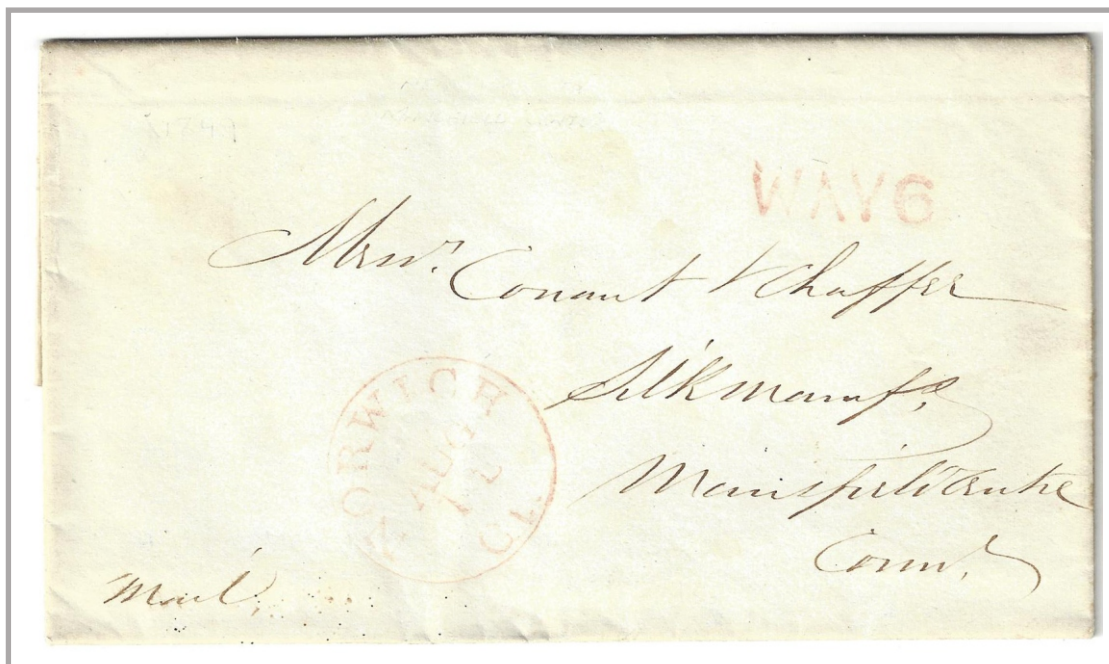 WAY 6
Messrs. Conant & Chaffee
Silk Manufs.
Mansfield Centre
Conn.
NORWICH CT.
AUG
12
Mail.